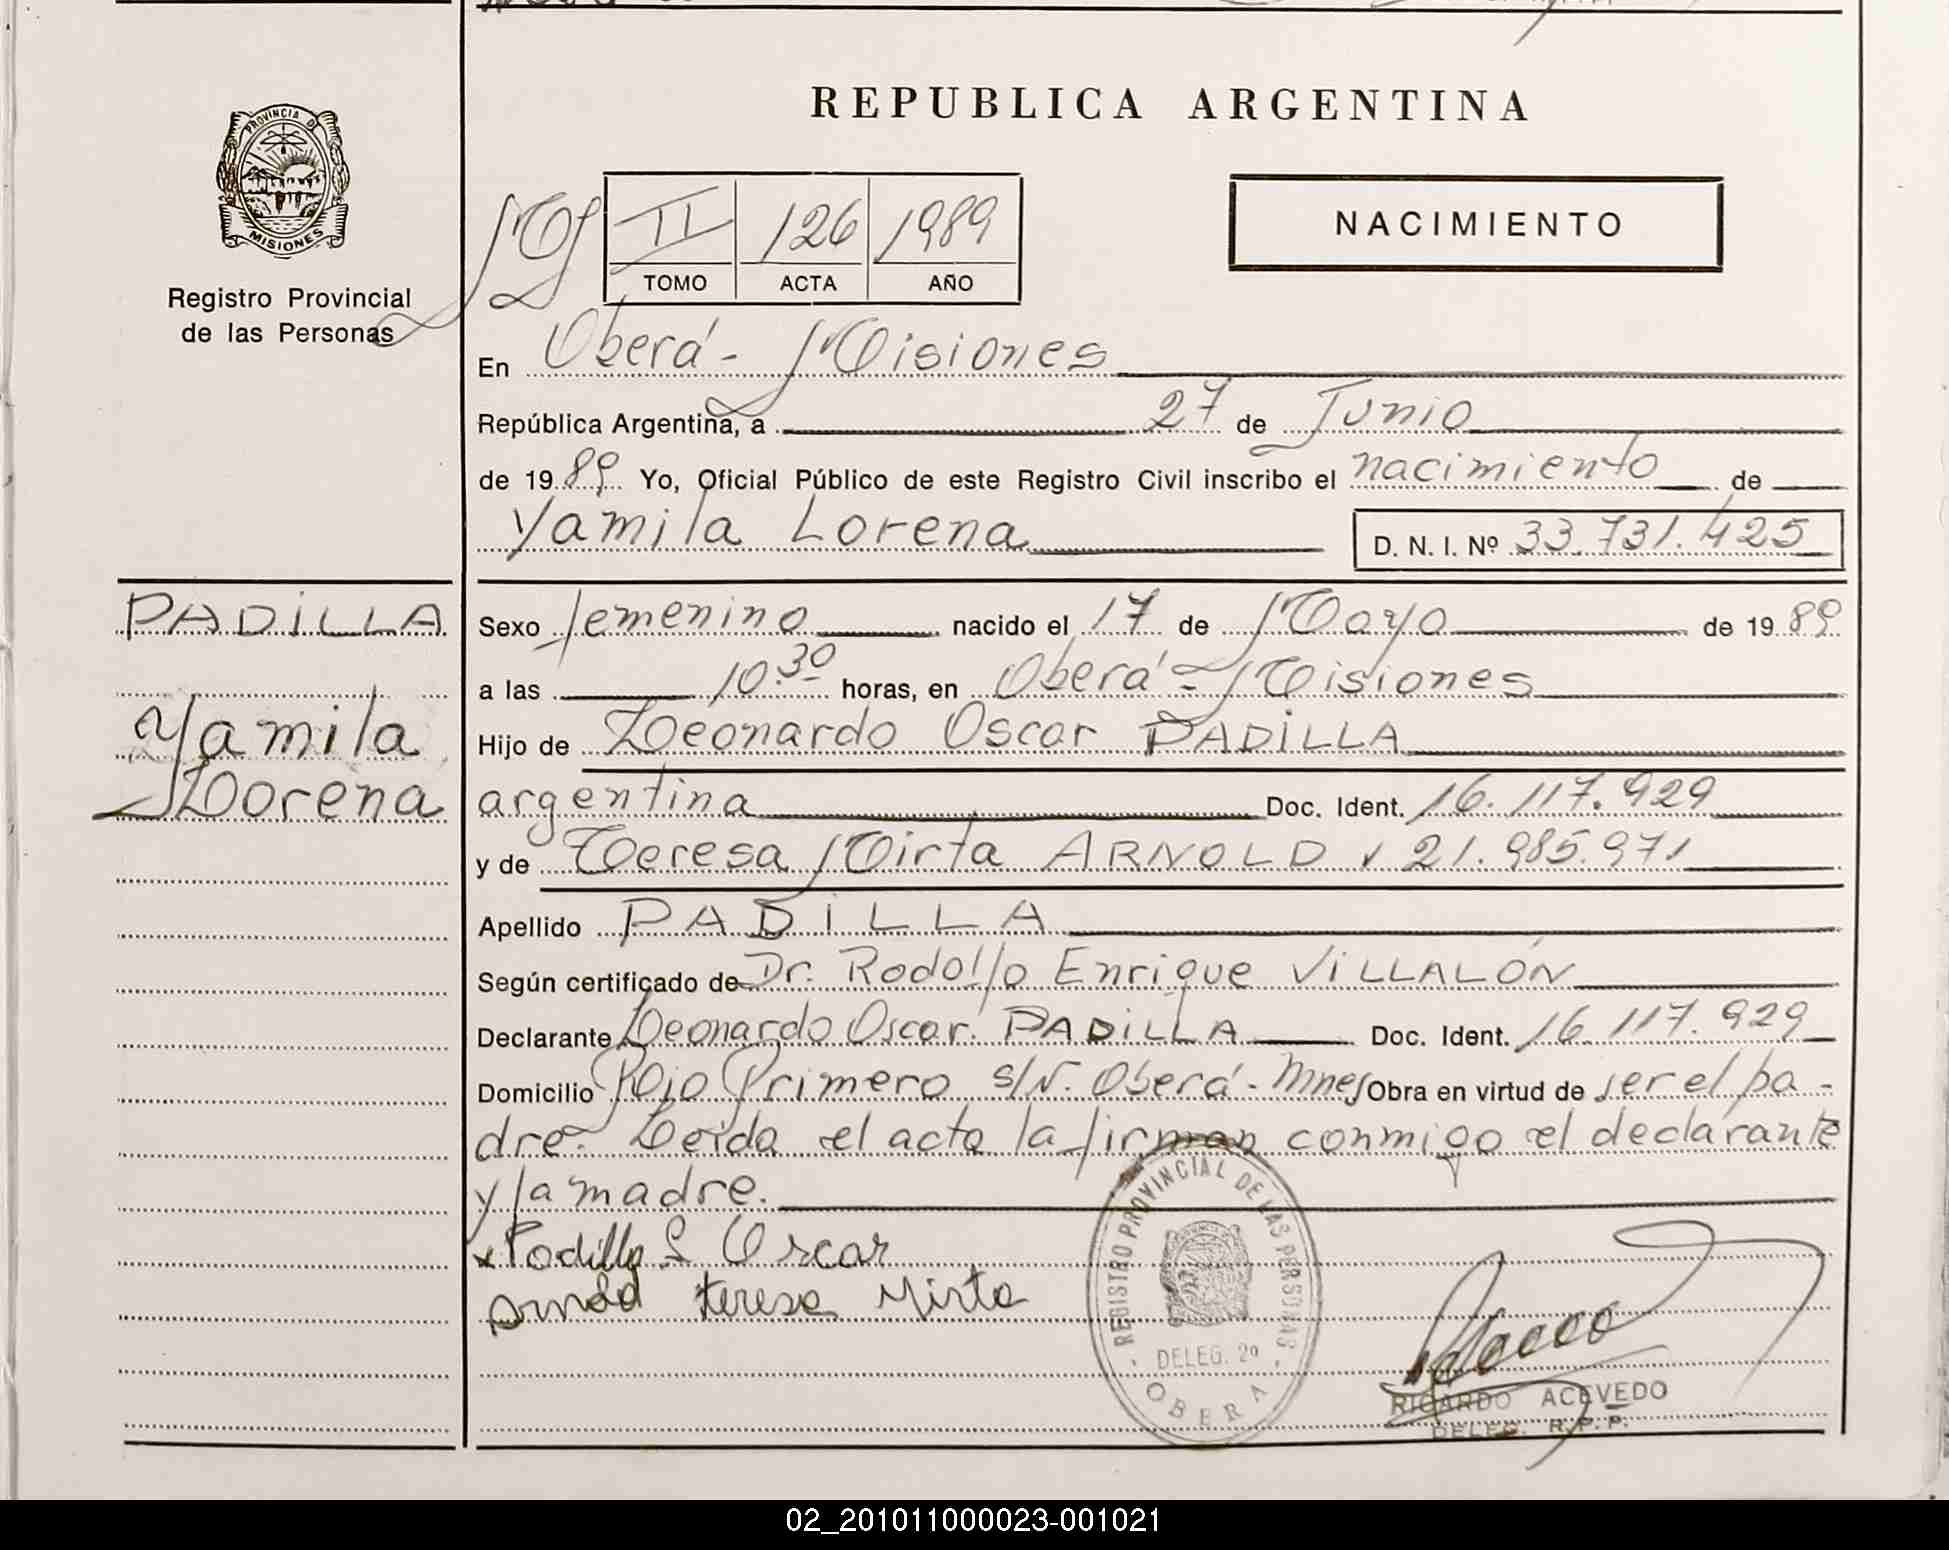 REPUBLICA ARGENTINA
PROVINCIA DE
MISIONES
Registro Provincial
de las Personas
M
II 126 1989
TOMO ACTA AÑO
NACIMIENTO
En Oberá - Misiones
República Argentina, a 27 de Junio
de 1989 Yo, Oficial Público de este Registro Civil inscribo el nacimiento de
Yamila Lorena D. N. I. Nº 33.731.425
PADILLA
Yamila
Lorena
Sexo femenino nacido el 17 de Mayo de 1989
a las 10.30 horas, en Oberá - Misiones
Hijo de Leonardo Oscar PADILLA
argentina Doc. Ident. 16.117.929
y de Teresa Mirta ARNOLD 21.985.971
Apellido PADILLA
Según certificado de Dr. Rodolfo Enrique VILLALÓN
Declarante Leonardo Oscar PADILLA Doc. Ident. 16.117.929
Domicilio Primero s/N. Oberá - Mnes Obra en virtud de ser el pa-
dre. Leída el acta la firman conmigo el declarante
y la madre.
Padilla L Oscar
Arnold teresa Mirta
REGISTRO PROVINCIAL DE LAS PERSONAS
DELEG. 2º
OBERA
RICARDO ACEVEDO
DELEG. R.P.P.
02_201011000023-001021